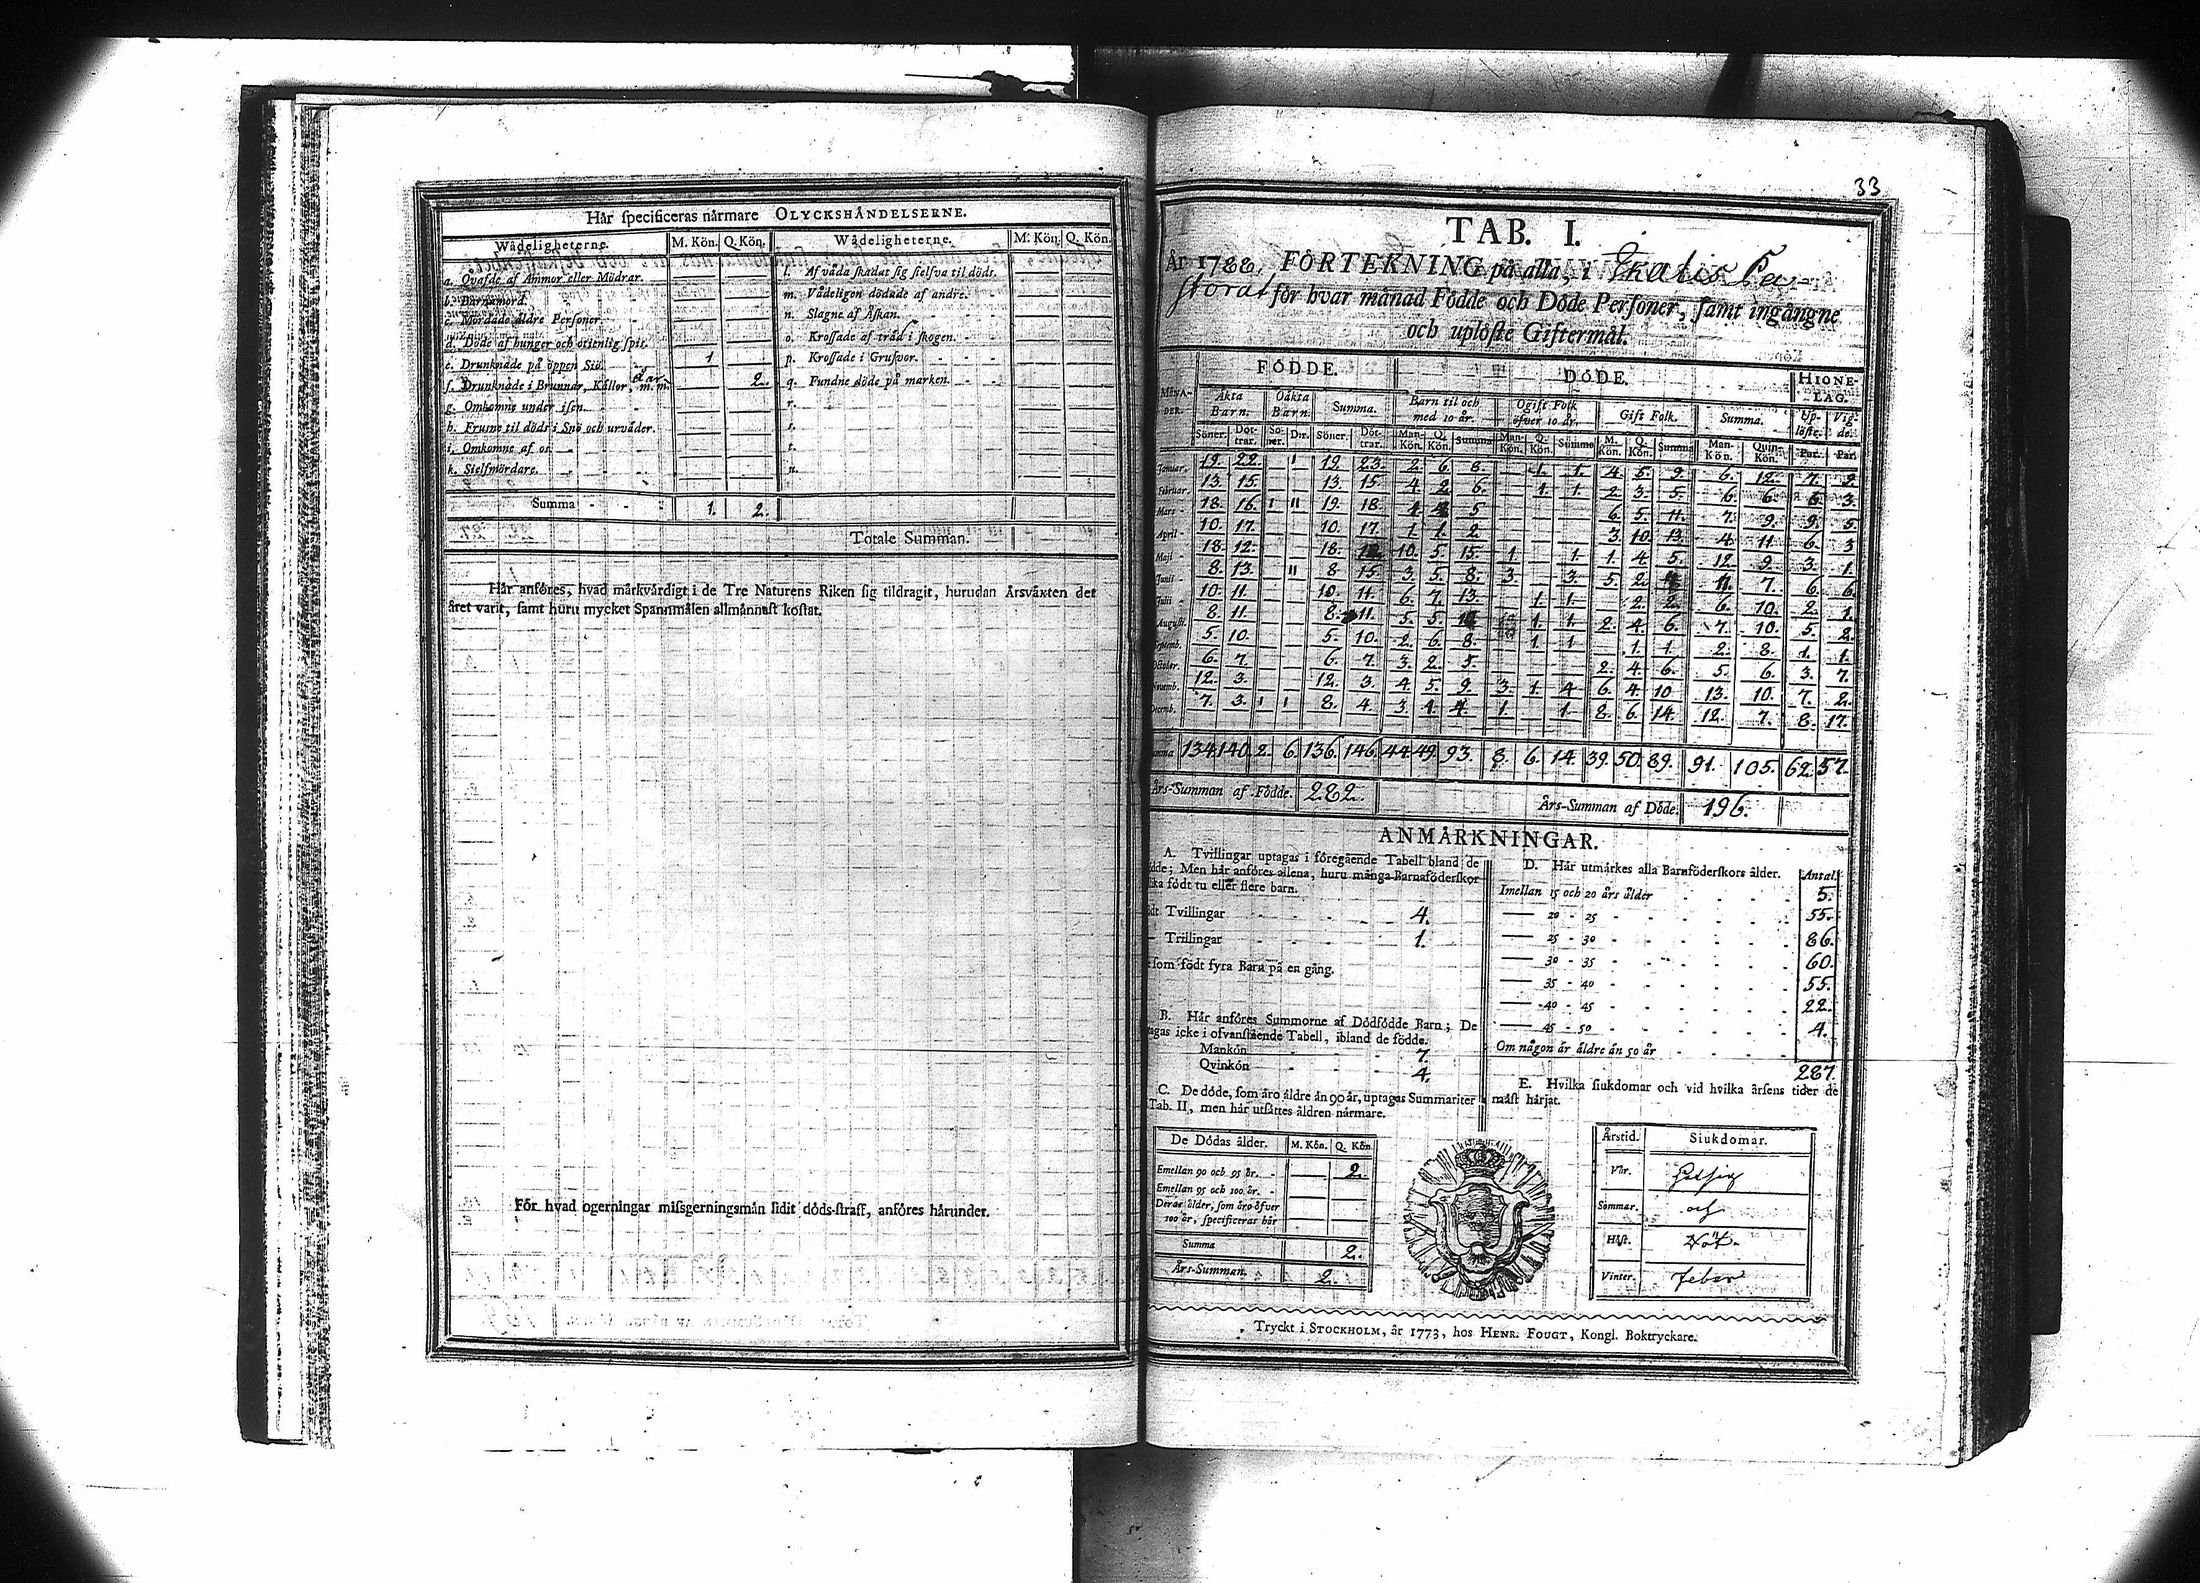 Här specificeras närmare OLYCKSHÄNDELSERNE.
Wådeligheterne. M. Kön. Q. Kön. Wådeligheterne. M. Kön. Q. Kön.
a. Qvafde af Ammor eller Mödrar. l. Af våda skadat sig sielfva til döds.
b. Barnamord. m. Vådeligen dödade af andre.
c. Mördade äldre Personer. n. Slagne af Åskan.
d. Döde af hunger och otienlig spis. o. Krossade af träd i skogen.
e. Drunknade på öppen Siö. 1 p. Krossade i Grufvor.
f. Drunknade i Brunnar, Källor, m.m. 2. q. Fundne döde på marken.
g. Omkomne under isen. r.
h. Frusne til döds i Snö och urväder. s.
i. Omkomne af os. t.
k. Sielfmördare. u.
Summa 1. 2.
Totale Summan.
Här anföres, hvad märkvärdigt i de Tre Naturens Riken sig tildragit, hurudan Årsväxten det
året varit, samt huru mycket Spannmålen allmännast kostat.
För hvad ogerningar missgerningsmän lidit döds-straff, anföres härunder.
33
TAB. I.
År 1788, FÖRTEKNING på alla, i Ekenäs Pa-
storat för hvar månad Födde och Döde Personer, samt ingångne
och uplöste Giftermål.
FÖDDE. DÖDE. HIONE-LAG.
MÅNA-DER. Äkta Barn. Oäkta Barn. Summa. Barn til och med 10 år. Ogift Folk öfver 10 år. Gift Folk. Summa. Up-löste. Vig-de.
Söner. Döt-trar. Sö-ner. Dtr. Söner. Döt-trar. Man-Kön. Q. Kön. Summa Man-Kön. Q. Kön. Summa M. Kön. Q. Kön. Summa Man-Kön. Quin-Kön. Par. Par.
Januar. 19. 22. — 1 19. 23. 2. 6. 8. — 1. 1. 4. 5. 9. 6. 12. 7. 9.
Februar. 13. 15. — — 13. 15. 4. 2. 6. — 1. 1. 2. 3. 5. 6. 6. 6. 3.
Mars 18. 16. 1 11 19. 18. 1. 4. 5 — — — 6. 5. 11. 7. 9. 9. 5.
April 10. 17. — — 10. 17. 1. 1. 2. — — — 3. 10. 13. 4. 11. 6. 3
Maji 18. 12. — — 18. 12. 10. 5. 15. 1. — 1. 1. 4. 5. 12. 9. 3. 1.
Junii 8. 13. — 11 8. 15. 3. 5. 8. 3. — 3. 5. 2. 11. 7. 6. 6.
Julii 10. 11. — — 10. 11. 6. 7. 13. — 1. 1. — 2. 2. 6. 10. 2. 1.
August. 8. 11. — — 8. 11. 5. 5. 10. 1. 1. 2. 4. 6. 7. 10. 5. 2.
Septemb. 5. 10. — — 5. 10. 2. 6. 8. — 1. 1. — 1. 1. 2. 8. 1. 1.
October. 6. 7. — — 6. 7. 3. 2. 5. — — — 2. 4. 6. 5. 6. 3. 7.
Novemb. 12. 3. — — 12. 3. 4. 5. 9. 3. 1. 4 6. 4. 10 13. 10. 7. 2.
Decemb. 7. 3. 1 1 8. 4 3. 1. 4. 1. 1. 8. 6. 14. 12. 7. 8. 17.
Summa 134. 140. 2. 6. 136. 146. 44. 49. 93. 8. 6. 14. 39. 50. 89. 91. 105. 62. 57.
Års-Summan af Födde. 282. Års-Summan af Döde. 196.
ANMÄRKNINGAR.
A. Tvillingar uptagas i föregående Tabell bland de
födde; Men här anföres allena, huru många Barnaföderskor
födt tu eller flere barn.
Tvillingar 4.
Trillingar 1.
som födt fyra Barn på en gång.
B. Här anföres Summorne af Dödfödde Barn; De
tagas icke i ofvanstående Tabell, ibland de födde.
Mankön 7.
Qvinkön 4.
C. De döde, som äro äldre än 90 år, uptagas Summariter
Tab. II, men här utsättes åldren närmare.
De Dödas ålder. M. Kön. Q. Kön
Emellan 90 och 95 år. 2.
Emellan 95 och 100 år.
Deras ålder, som äro öfver
100 år, specificeras här
Summa 2.
Års-Summan. 2.
D. Här utmärkes alla Barnföderskors ålder. Antal
Imellan 15 och 20 års ålder 5.
20 - 25 55.
25 - 30 86.
30 - 35 60.
35 - 40 55.
40 - 45 22.
45 - 50 4.
Om någon är äldre än 50 år
287.
E. Hvilka siukdomar och vid hvilka årsens tider de
mäst härjat.
Årstid. Siukdomar.
Vår. Hetsig
Sommar. och
Höst. Röt-
Vinter. feber
Tryckt i STOCKHOLM, år 1773, hos HENR. FOUGT, Kongl. Boktryckare.